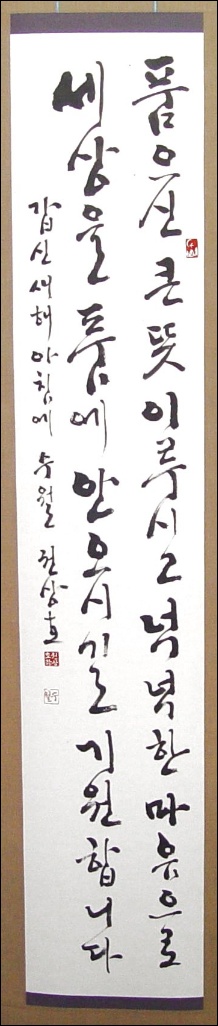 품으신 큰 뜻 이루시고 넉넉한 마음으로
세상을 품에 안으시기를 기원합니다
갑신 새해 아침에 수월 권상호